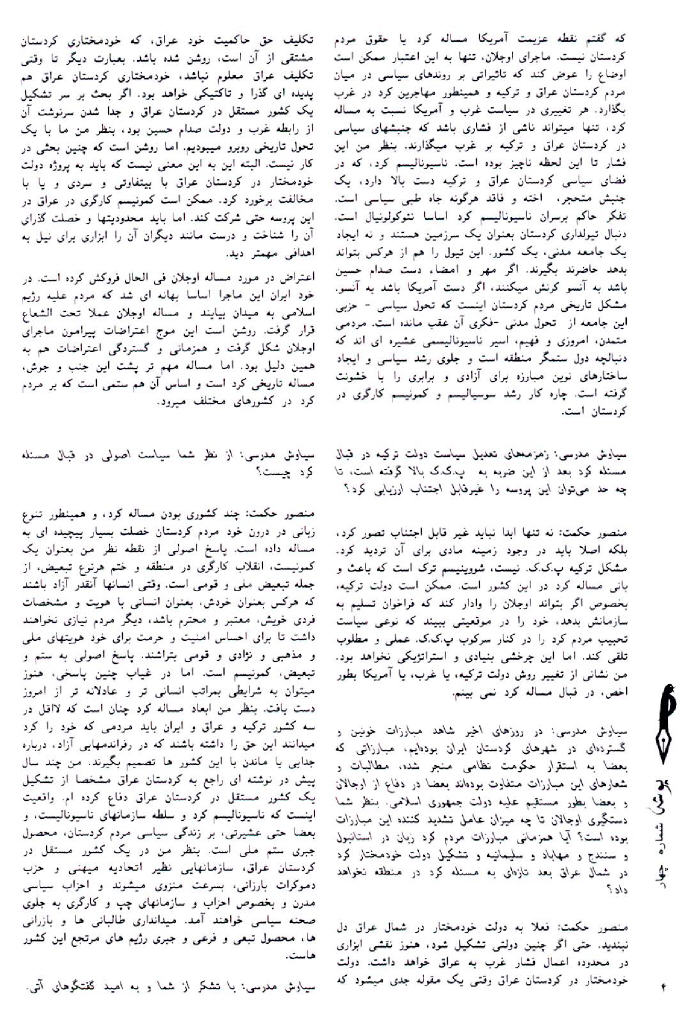 که گفتم نقطه عزیمت آمریکا مساله کرد یا حقوق مردم
کردستان نیست. ماجرای اوجلان، تنها به این اعتبار ممکن است
اوضاع را عوض کند که تاثیراتی بر روندهای سیاسی در میان
مردم کردستان عراق و ترکیه و همینطور مهاجرین کرد در غرب
بگذارد. هر تغییری در سیاست غرب و آمریکا نسبت به مساله
کرد، تنها میتواند ناشی از فشاری باشد که جنبشهای سیاسی
در کردستان عراق و ترکیه بر غرب میگذارند. بنظر من این
فشار تا این لحظه ناچیز بوده است. ناسیونالیسم کرد، که در
فضای سیاسی کردستان عراق و ترکیه دست بالا دارد، یک
جنبش متحجر، اخته و فاقد هرگونه جاه طبی سیاسی است.
تفکر حاکم برسران ناسیونالیسم کرد اساسا نئوکولونیال است.
دنبال تیولداری کردستان بعنوان یک سرزمین هستند و نه ایجاد
یک جامعه مدنی، یک کشور. این تیول را هم از هرکس بتواند
بدهد حاضرند بگیرند. اگر مهر و امضاء دست صدام حسین
باشد به آنسو کرنش میکنند، اگر دست آمریکا باشد به آنسو.
مشکل تاریخی مردم کردستان اینست که تحول سیاسی - حزبی
این جامعه از تحول مدنی -فکری آن عقب مانده است. مردمی
متمدن، امروزی و فهیم، اسیر ناسیونالیسمی عشیره ای اند که
دنبالچه دول ستمگر منطقه است و جلوی رشد سیاسی و ایجاد
ساختارهای نوین مبارزه برای آزادی و برابری را با خشونت
گرفته است. چاره کار رشد سوسیالیسم و کمونیسم کارگری در
کردستان است.
سیاوش مدرسی: زمزمه‌های تعدیل سیاست دولت ترکیه در قبال
مسئله کرد بعد از این ضربه به پ.ک.ک بالا گرفته است، تا
چه حد می‌توان این پروسه را غیرقابل اجتناب ارزیابی کرد؟
منصور حکمت: نه تنها ابدا نباید غیر قابل اجتناب تصور کرد،
بلکه اصلا باید در وجود زمینه مادی برای آن تردید کرد.
مشکل ترکیه پ.ک.ک. نیست، شووینیسم ترک است که باعث و
بانی مساله کرد در این کشور است. ممکن است دولت ترکیه،
بخصوص اگر بتواند اوجلان را وادار کند که فراخوان تسلیم به
سازمانش بدهد، خود را در موقعیتی ببیند که نوعی سیاست
تحبیب مردم کرد را در کنار سرکوب پ.ک.ک. عملی و مطلوب
تلقی کند. اما این چرخشی بنیادی و استراتژیکی نخواهد بود.
من نشانی از تغییر روش دولت ترکیه، یا غرب، یا آمریکا بطور
اخص، در قبال مساله کرد نمی بینم.
سیاوش مدرسی: در روزهای اخیر شاهد مبارزات خونین و
گسترده‌ای در شهرهای کردستان ایران بوده‌ایم، مبارزاتی که
بعضا به استقرار حکومت نظامی منجر شده، مطالبات و
شعارهای این مبارزات متفاوت بوده‌اند بعضا در دفاع از اوجالان
و بعضا بطور مستقیم علیه دولت جمهوری اسلامی. بنظر شما
دستگیری اوجالان تا چه میزان عامل تشدید کننده این مبارزات
بوده است؟ آیا همزمانی مبارزات مردم کرد زبان در استانبول
و سنندج و مهاباد و سلیمانیه و تشکیل دولت خودمختار کرد
در شمال عراق بعد تازه‌ای به مسئله کرد در منطقه نخواهد
داد؟
منصور حکمت: فعلا به دولت خودمختار در شمال عراق دل
نبندید. حتی اگر چنین دولتی تشکیل شود، هنوز نقشی ابزاری
در محدوده اعمال فشار غرب به عراق خواهد داشت. دولت
خودمختار در کردستان عراق وقتی یک مقوله جدی میشود که
تکلیف حق حاکمیت خود عراق، که خودمختاری کردستان
مشتقی از آن است، روشن شده باشد. بعبارت دیگر تا وقتی
تکلیف عراق معلوم نباشد، خودمختاری کردستان عراق هم
پدیده ای گذرا و تاکتیکی خواهد بود. اگر بحث بر سر تشکیل
یک کشور مستقل در کردستان عراق و جدا شدن سرنوشت آن
از رابطه غرب و دولت صدام حسین بود، بنظر من ما با یک
تحول تاریخی روبرو میبودیم. اما روشن است که چنین بحثی در
کار نیست. البته این به این معنی نیست که باید به پروژه دولت
خودمختار در کردستان عراق با بیتفاوتی و سردی و یا با
مخالفت برخورد کرد. ممکن است کمونیسم کارگری در عراق در
این پروسه حتی شرکت کند. اما باید محدودیتها و خصلت گذرای
آن را شناخت و درست مانند دیگران آن را ابزاری برای نیل به
اهدافی مهمتر دید.
اعتراض در مورد مساله اوجلان فی الحال فروکش کرده است. در
خود ایران این ماجرا اساسا بهانه ای شد که مردم علیه رژیم
اسلامی به میدان بیایند و مساله اوجلان عملا تحت الشعاع
قرار گرفت. روشن است این موج اعتراضات پیرامون ماجرای
اوجلان شکل گرفت و همزمانی و گستردگی اعتراضات هم به
همین دلیل بود. اما مساله مهم تر پشت این جنب و جوش،
مساله تاریخی کرد است و اساس آن هم ستمی است که بر مردم
کرد در کشورهای مختلف میرود.
سیاوش مدرسی: از نظر شما سیاست اصولی در قبال مسئله
کرد چیست؟
منصور حکمت: چند کشوری بودن مساله کرد، و همینطور تنوع
زبانی در درون خود مردم کردستان خصلت بسیار پیچیده ای به
مساله داده است. پاسخ اصولی از نقطه نظر من بعنوان یک
کمونیست، انقلاب کارگری در منطقه و ختم هرنوع تبعیض، از
جمله تبعیض ملی و قومی است. وقتی انسانها آنقدر آزاد باشند
که هرکس بعنوان خودش، بعنوان انسانی با هویت و مشخصات
فردی خویش، معتبر و محترم باشد، دیگر مردم نیازی نخواهند
داشت تا برای احساس امنیت و حرمت برای خود هویتهای ملی
و مذهبی و نژادی و قومی بتراشند. پاسخ اصولی به ستم و
تبعیض، کمونیسم است. اما در غیاب چنین پاسخی، هنوز
میتوان به شرایطی بمراتب انسانی تر و عادلانه تر از امروز
دست یافت. بنظر من ابعاد مساله کرد چنان است که لااقل در
سه کشور ترکیه و عراق و ایران باید مردمی که خود را کرد
میدانند این حق را داشته باشند که در رفراندمهایی آزاد، درباره
جدایی یا ماندن با این کشور ها تصمیم بگیرند. من چند سال
پیش در نوشته ای راجع به کردستان عراق مشخصا از تشکیل
یک کشور مستقل در کردستان عراق دفاع کرده ام. واقعیت
اینست که ناسیونالیسم کرد و سلطه سازمانهای ناسیونالیست، و
بعضا حتی عشیرتی، بر زندگی سیاسی مردم کردستان، محصول
جبری ستم ملی است. بنظر من در یک کشور مستقل در
کردستان عراق، سازمانهایی نظیر اتحادیه میهنی و حزب
دموکرات بارزانی، بسرعت منزوی میشوند و احزاب سیاسی
مدرن و بخصوص احزاب و سازمانهای چپ و کارگری به جلوی
صحنه سیاسی خواهند آمد. میدانداری طالبانی ها و بارزانی
ها، محصول تبعی و فرعی و جبری رژیم های مرتجع این کشور
هاست.
سیاوش مدرسی: با تشکر از شما و به امید گفتگوهای آتی.
پوشه شماره چهار
۴